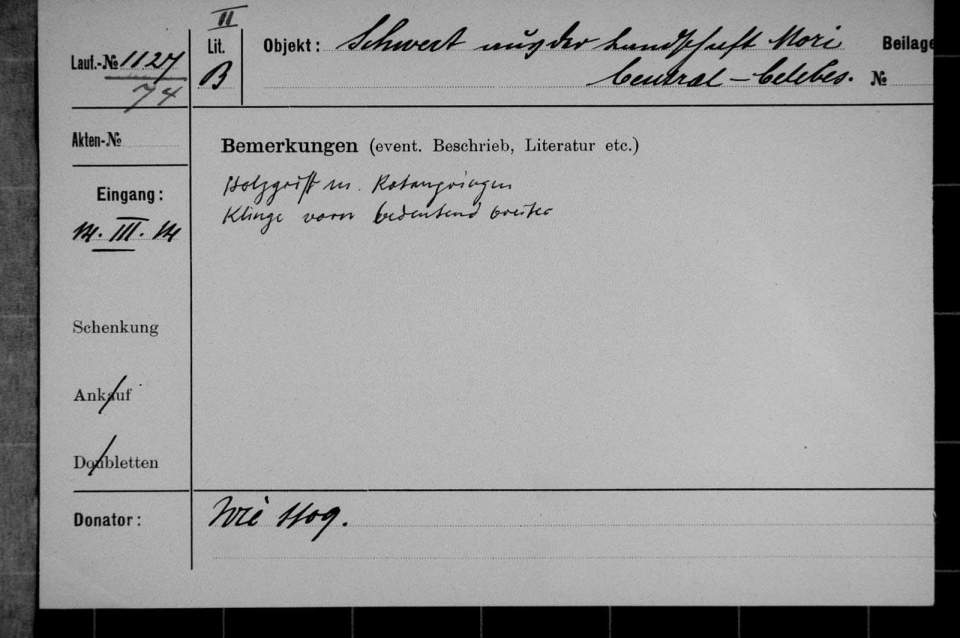 II
Lauf.-№ 1127
74
Lit.
B
Objekt: Schwert aus der Landschaft Mori
Central-Celebes.
Beilage
№
Akten-№
Eingang:
14. III. 14
Schenkung
Ankauf
Doubletten
Bemerkungen (event. Beschrieb, Literatur etc.)
Holzgriff m. Rotangringen
Klinge vorn bedeutend breiter
Donator: Wie